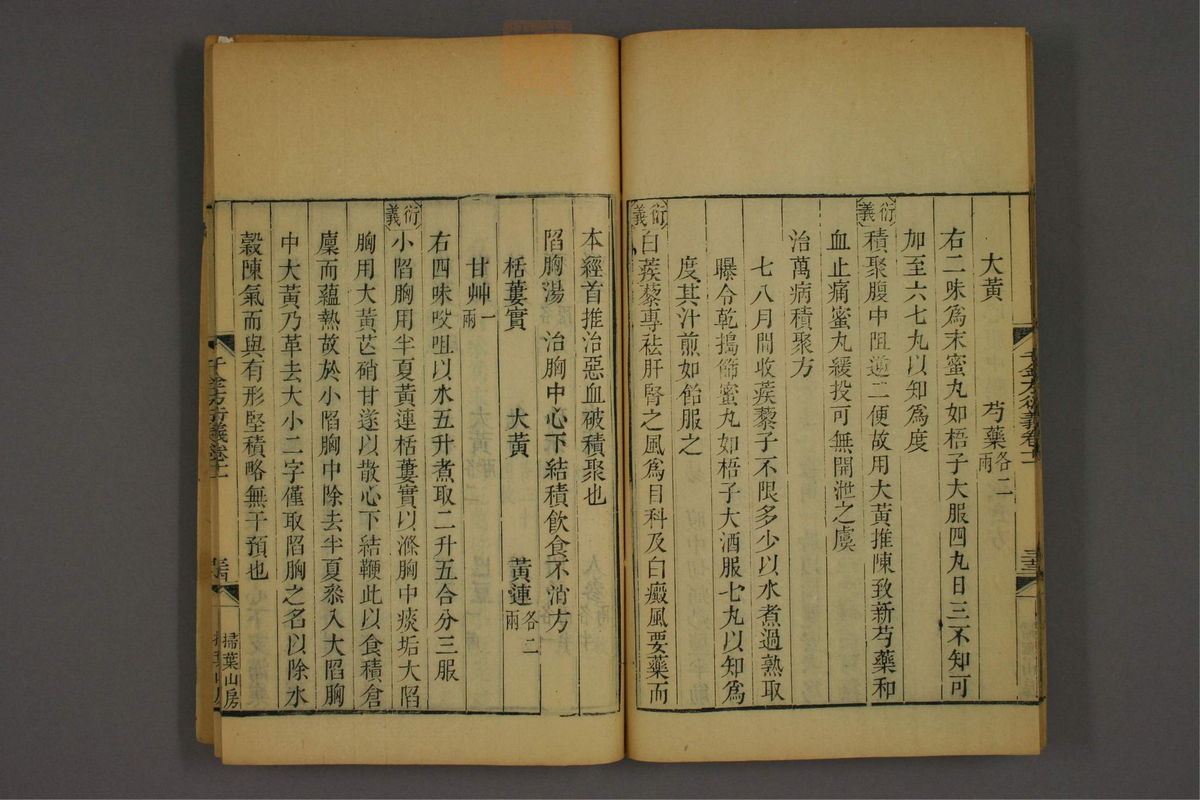 大黃　芍藥各二兩
右二味爲末蜜丸如梧子大服四丸日三不知可
加至六七丸以知爲度
衍義
積聚腹中阻逆二便故用大黃推陳致新芍藥和
血止痛蜜丸緩投可無開泄之虞
治萬病積聚方
七八月間收蒺藜子不限多少以水煮過熟取
曝令乾搗篩蜜丸如梧子大酒服七丸以知爲
度其汁煎如飴服之
衍義
白蒺藜專祛肝腎之風爲目科及白癜風要藥而
本經首推治惡血破積聚也
陷胸湯　治胸中心下結積飲食不消方
栝蔞實　大黃　黃連各二兩
甘艸一兩
右四味㕮咀以水五升煮取二升五合分三服
衍義
小陷胸用半夏黃連栝蔞實以滌胸中痰垢大陷
胸用大黃芒硝甘遂以散心下結鞕此以食積倉
廩而蘊熱故於小陷胸中除去半夏叅入大陷胸
中大黃乃革去大小二字僅取陷胸之名以除水
穀陳氣而與有形堅積略無干預也
千金方衍義卷十一
掃葉山房